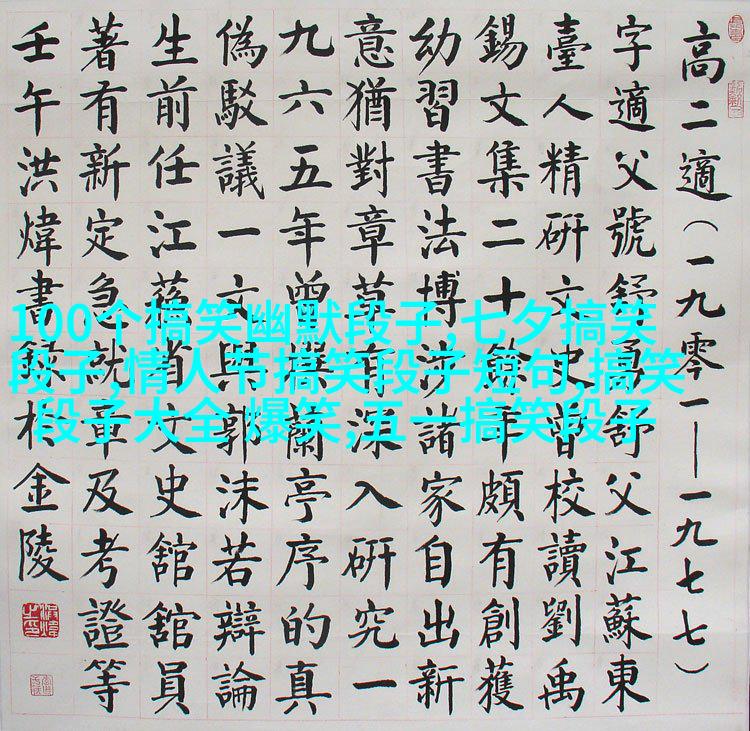 高二適(一九零一—一九七七)
字適父號舒舒父江蘇東
臺人精研文史曾校讀劉禹
錫文集二十餘年頗有創獲
幼習書法博涉諸家自出新
意猶對章草有深入研究一
九六五年曾撰蘭亭序的真
偽駁議一文與郭沫若辯論
生前任江蘇省文史舘舘員
著有新定急就章及考證等
壬午洪煒書錄於金陵
100个搞笑幽默段子,七夕搞笑
段子,情人节搞笑段子短句,搞笑
段子大全 爆笑,五一搞笑段子